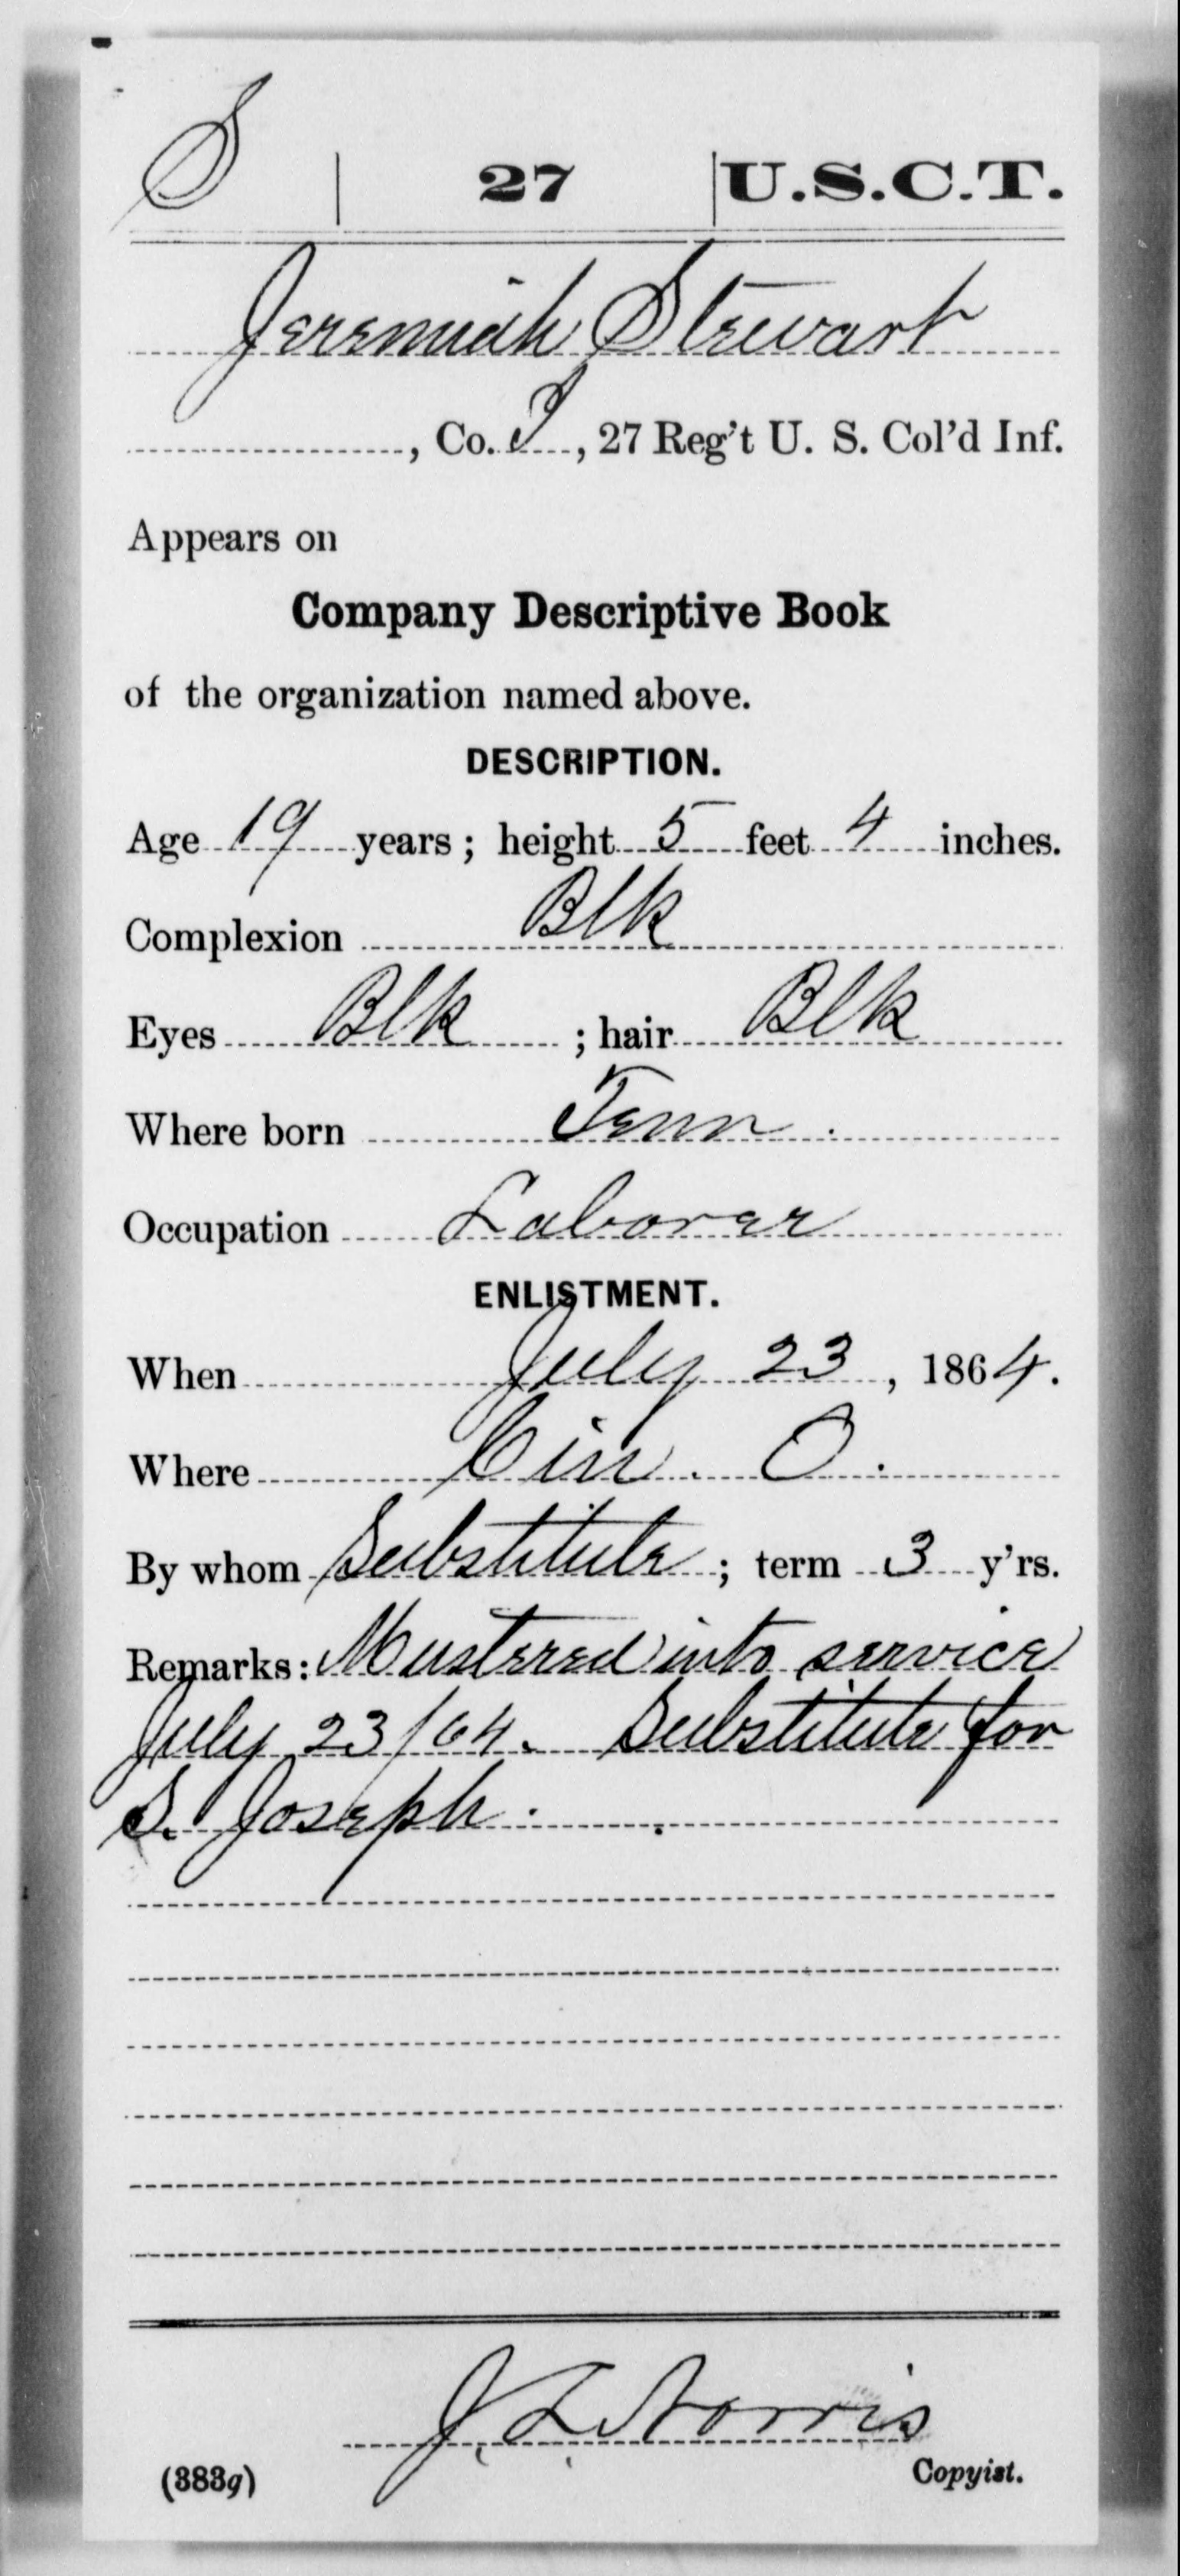 S | 27 | U.S.C.T.
Jeremiah Stewart
, Co. I, 27 Reg't U. S. Col'd Inf.
Appears on
Company Descriptive Book
of the organization named above.
DESCRIPTION.
Age 19 years; height 5 feet 4 inches.
Complexion Blk
Eyes Blk; hair Blk
Where born Tenn.
Occupation Laborer
ENLISTMENT.
When July 23, 1864.
Where Cin. O.
By whom Substitute; term 3 y'rs.
Remarks: Mustered into service
July 23/64. Substitute for
S. Joseph.
J. L. Norris
(383g) Copyist.